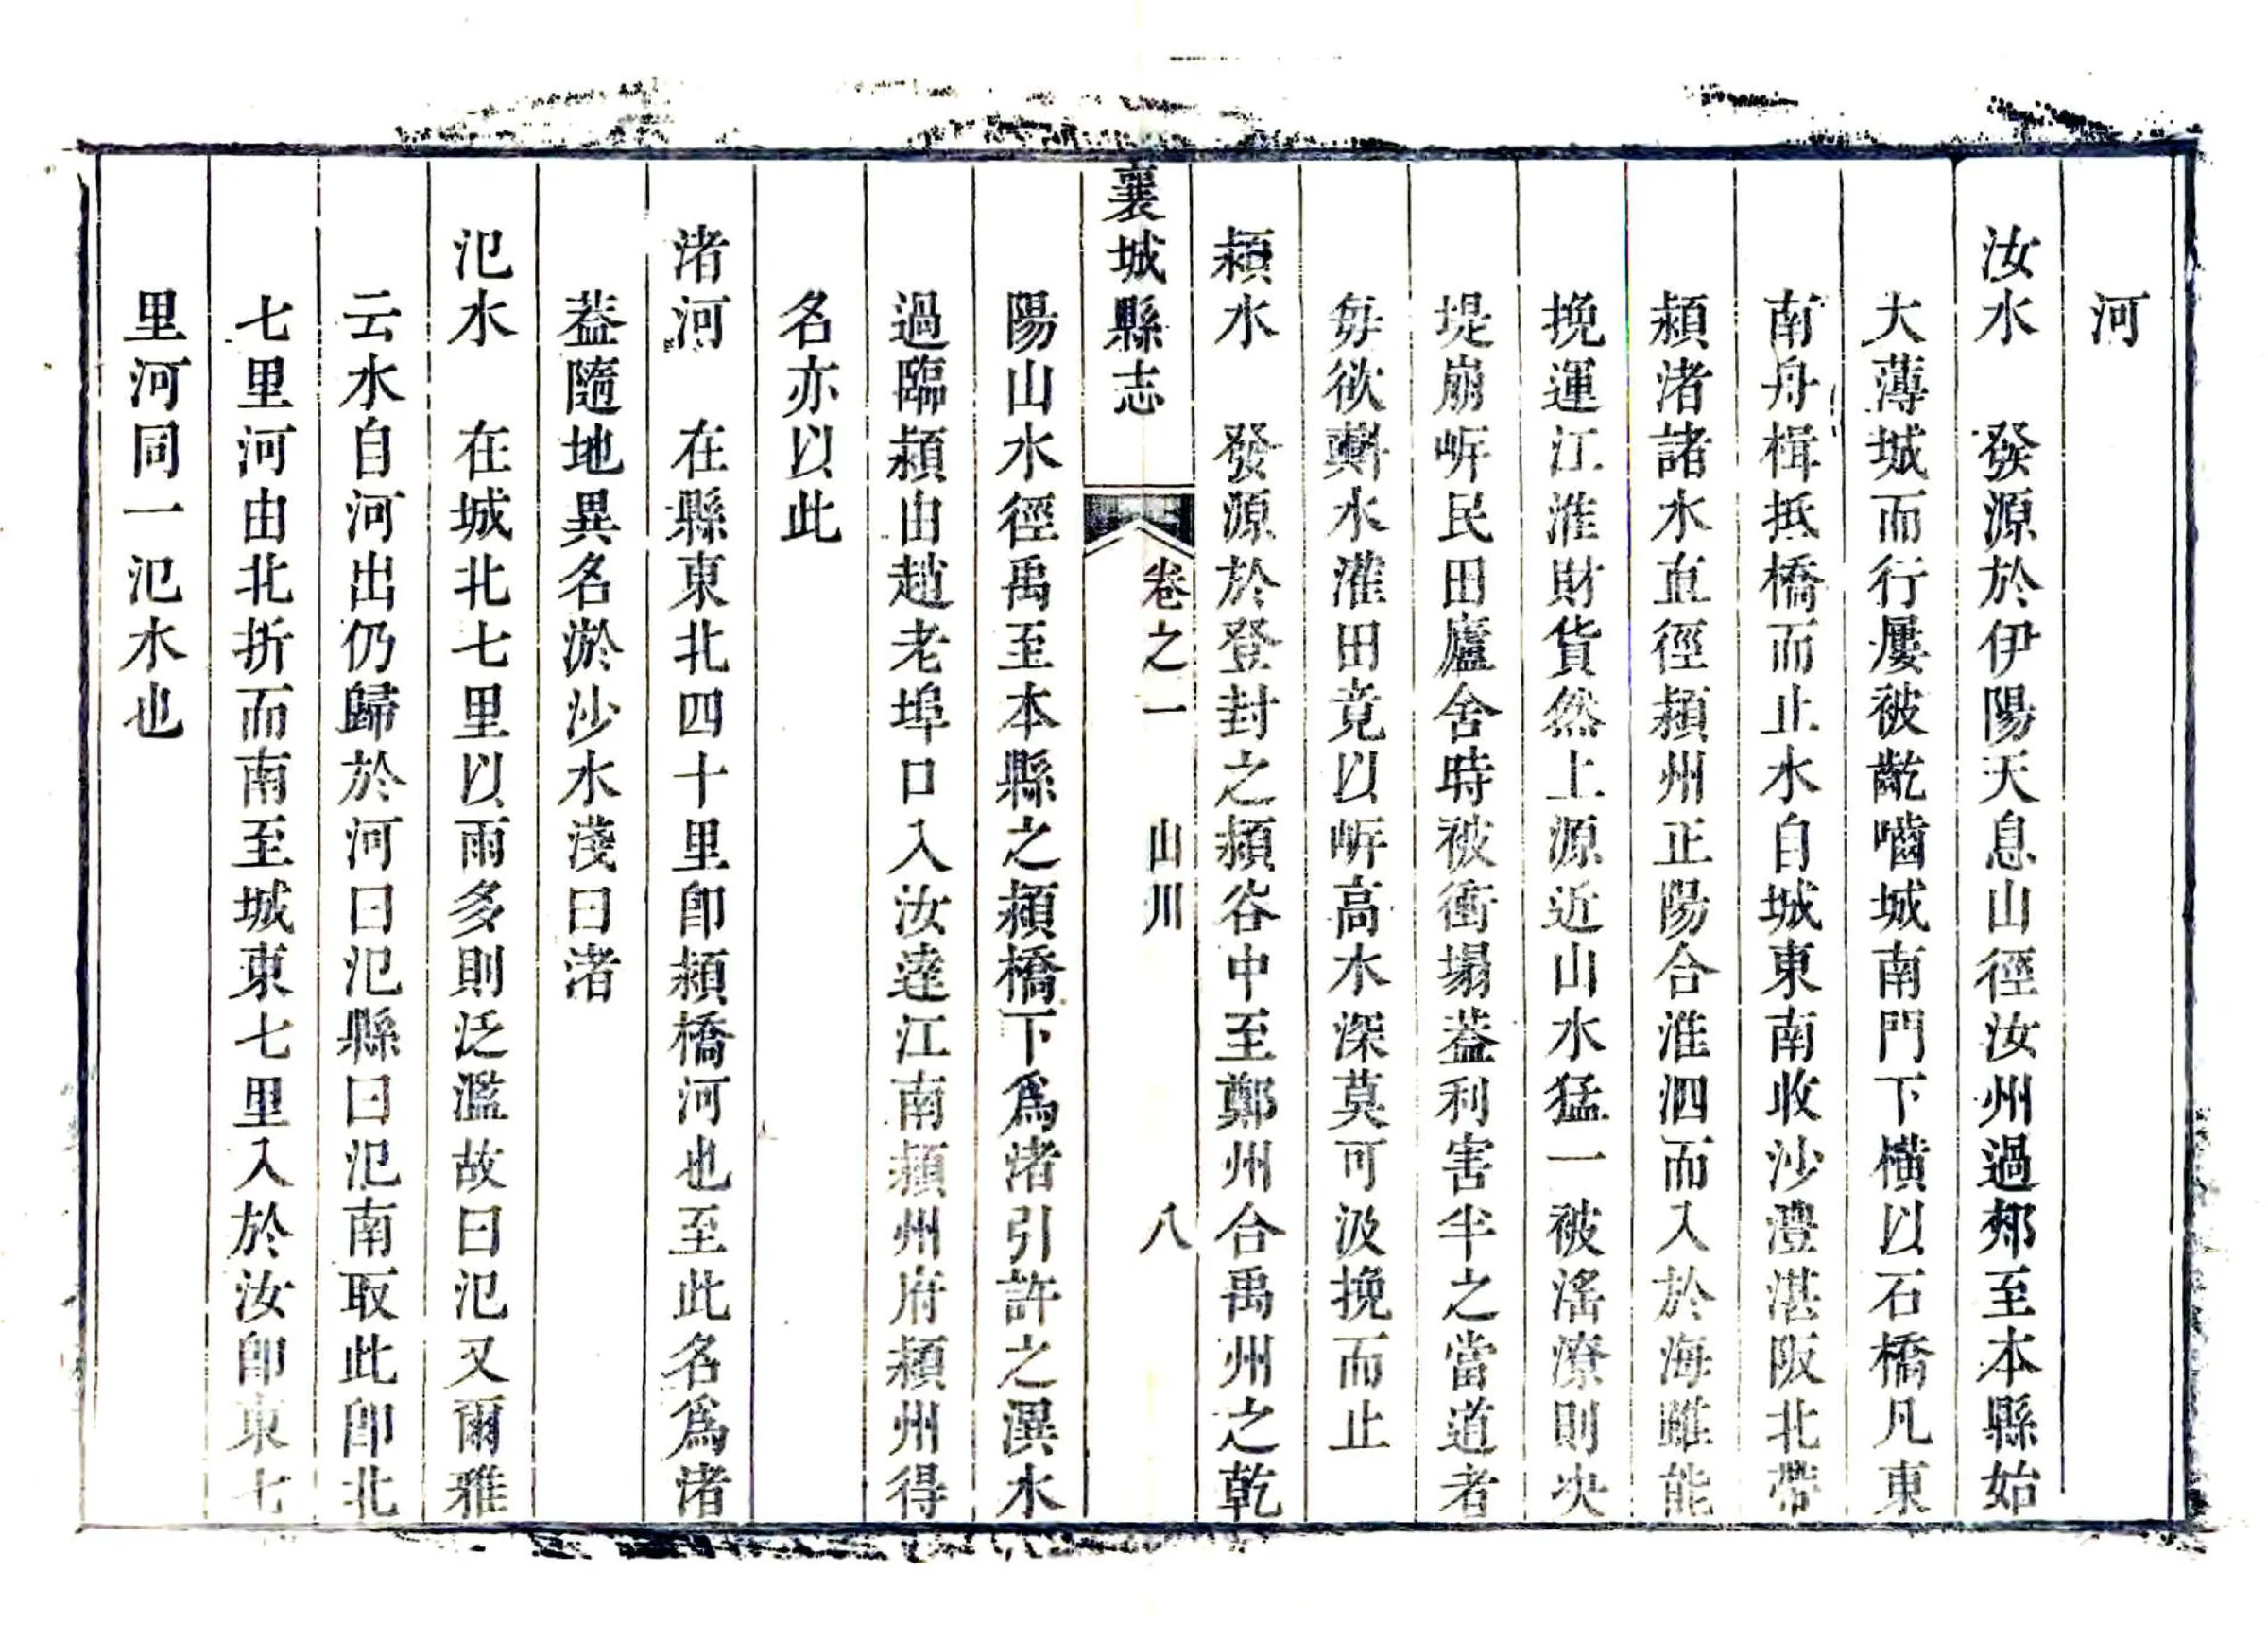 河
汝水　發源於伊陽天息山徑汝州過郟至本縣始
大薄城而行屢被齕嚙城南門下橫以石橋凡東
南舟楫抵橋而止水自城東南收沙澧湛阪北帶
潁渚諸水直徑潁州正陽合淮泗而入於海雖能
挽運江淮財貨然上源近山水猛一被滛潦則决
堤崩㟁民田廬舍時被衝塌葢利害半之當道者
毎欲㪺水灌田竟以㟁高水深莫可汲挽而止
潁水　發源於登封之潁谷中至鄭州合禹州之乾
襄城縣志　卷之一　山川　八
陽山水徑禹至本縣之潁橋下爲渚引許之潩水
過臨潁由趙老埠口入汝達江南潁州府潁州得
名亦以此
渚河　在縣東北四十里卽潁橋河也至此名爲渚
葢隨地異名淤沙水淺曰渚
氾水　在城北七里以雨多則泛濫故曰氾又爾雅
云水自河出仍歸於河曰氾縣曰氾南取此卽北
七里河由北折而南至城東七里入於汝卽東七
里河同一氾水也